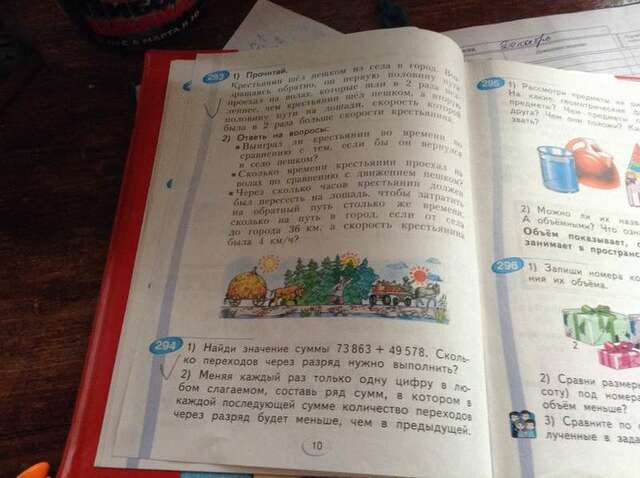 С 6 МАРТА В 20
Декабрь
293 1) Прочитай.
Крестьянин шёл пешком из села в город. Воз-
вращаясь обратно, он первую половину пути
проехал на волах, которые шли в 2 раза мед-
леннее, чем крестьянин шёл пешком, а вторую
половину пути на лошади, скорость которой
была в 2 раза больше скорости крестьянина.
2) Ответь на вопросы:
• Выиграл ли крестьянин во времени по
сравнению с тем, если бы он вернулся
в село пешком?
• Сколько времени крестьянин проехал на
волах по сравнению с движением пешком?
• Через сколько часов крестьянин должен
был пересесть на лошадь, чтобы затратить
на обратный путь столько же времени,
сколько на путь в город, если от села
до города 36 км, а скорость крестьянина
была 4 км/ч?
294 1) Найди значение суммы 73 863 + 49 578. Сколь-
ко переходов через разряд нужно выполнить?
2) Меняя каждый раз только одну цифру в лю-
бом слагаемом, составь ряд сумм, в котором в
каждой последующей сумме количество переходов
через разряд будет меньше, чем в предыдущей.
10
295 1) Рассмотри предметы на
На какие геометрические
предметы? Чем предметы
друга? Чем они похожи?
звать?
2) Можно ли их назва
А объёмными? Что озна
Объём показывает,
занимает в пространс
296 1) Запиши номера ко
ния их объёма.
2
2) Сравни размер
соту) под номера
объём меньше?
3) Сравните по
лученные в зада